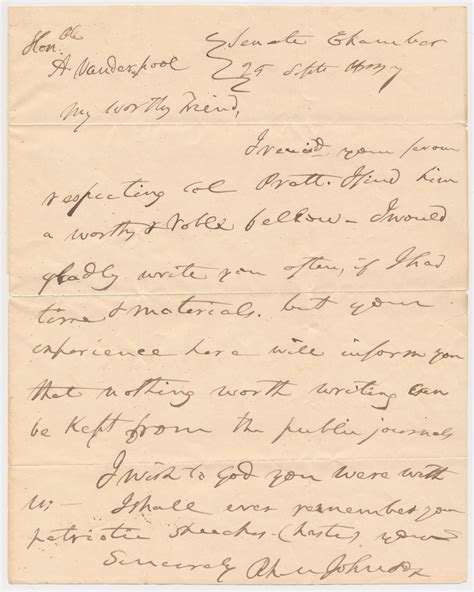 Honble
A Vanderpool
Senate Chamber
25 Septe 1837
My worthy Friend,
I receid your favour
respecting Col Pratt. I find him
a worthy & Noble fellow – I would
gladly write you often, if I had
time & materials. but your
experience here will inform you
that nothing worth writing can
be kept from the public journals
I wish to God you were with
us – I shall ever remember your
patriotic speeches – (haste) yours
Sincerely Rh M Johnson